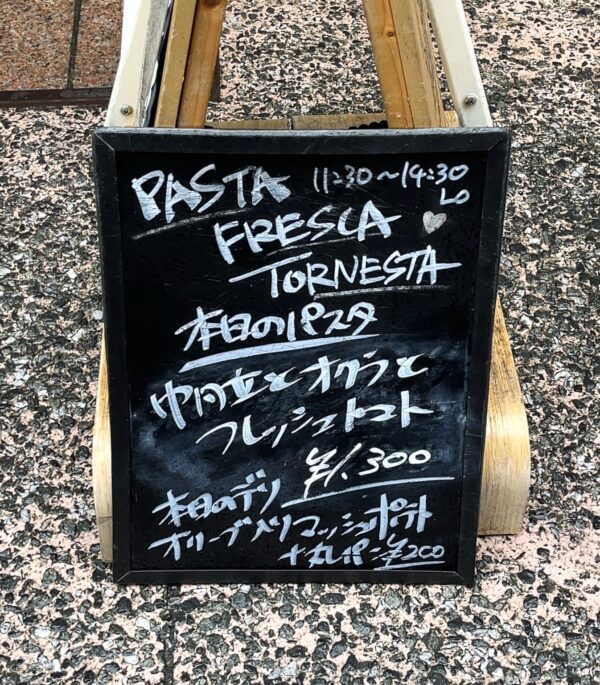 PASTA 11:30〜14:30
LO
FRESCA
TORNESTA
本日のパスタ
帆立とオクラと
フレッシュトマト
¥1.300
本日のデリ
オリーブ入りマッシュポテト
+丸パン¥200